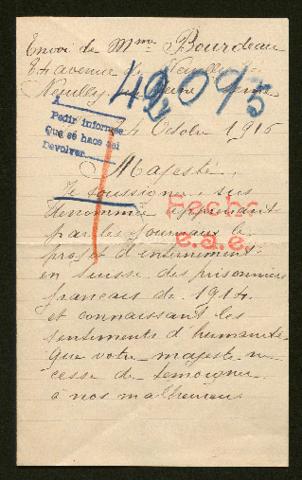 Envoi de Mme Bourdeau
84 avenue de Neuilly
Neuilly Seine
42095
A
Pedir informes
Que se hace así
Devolver
24 Octobre 1916
Majesté,
Je soussignée sus
dénommée apprenant
Fecho
par les journaux le
e.a.e.
projet d'internement
en Suisse des prisonniers
français de 1914
et connaissant les
sentiments d'humanité
que votre majesté ne
cesse de témoigner
à nos malheureux